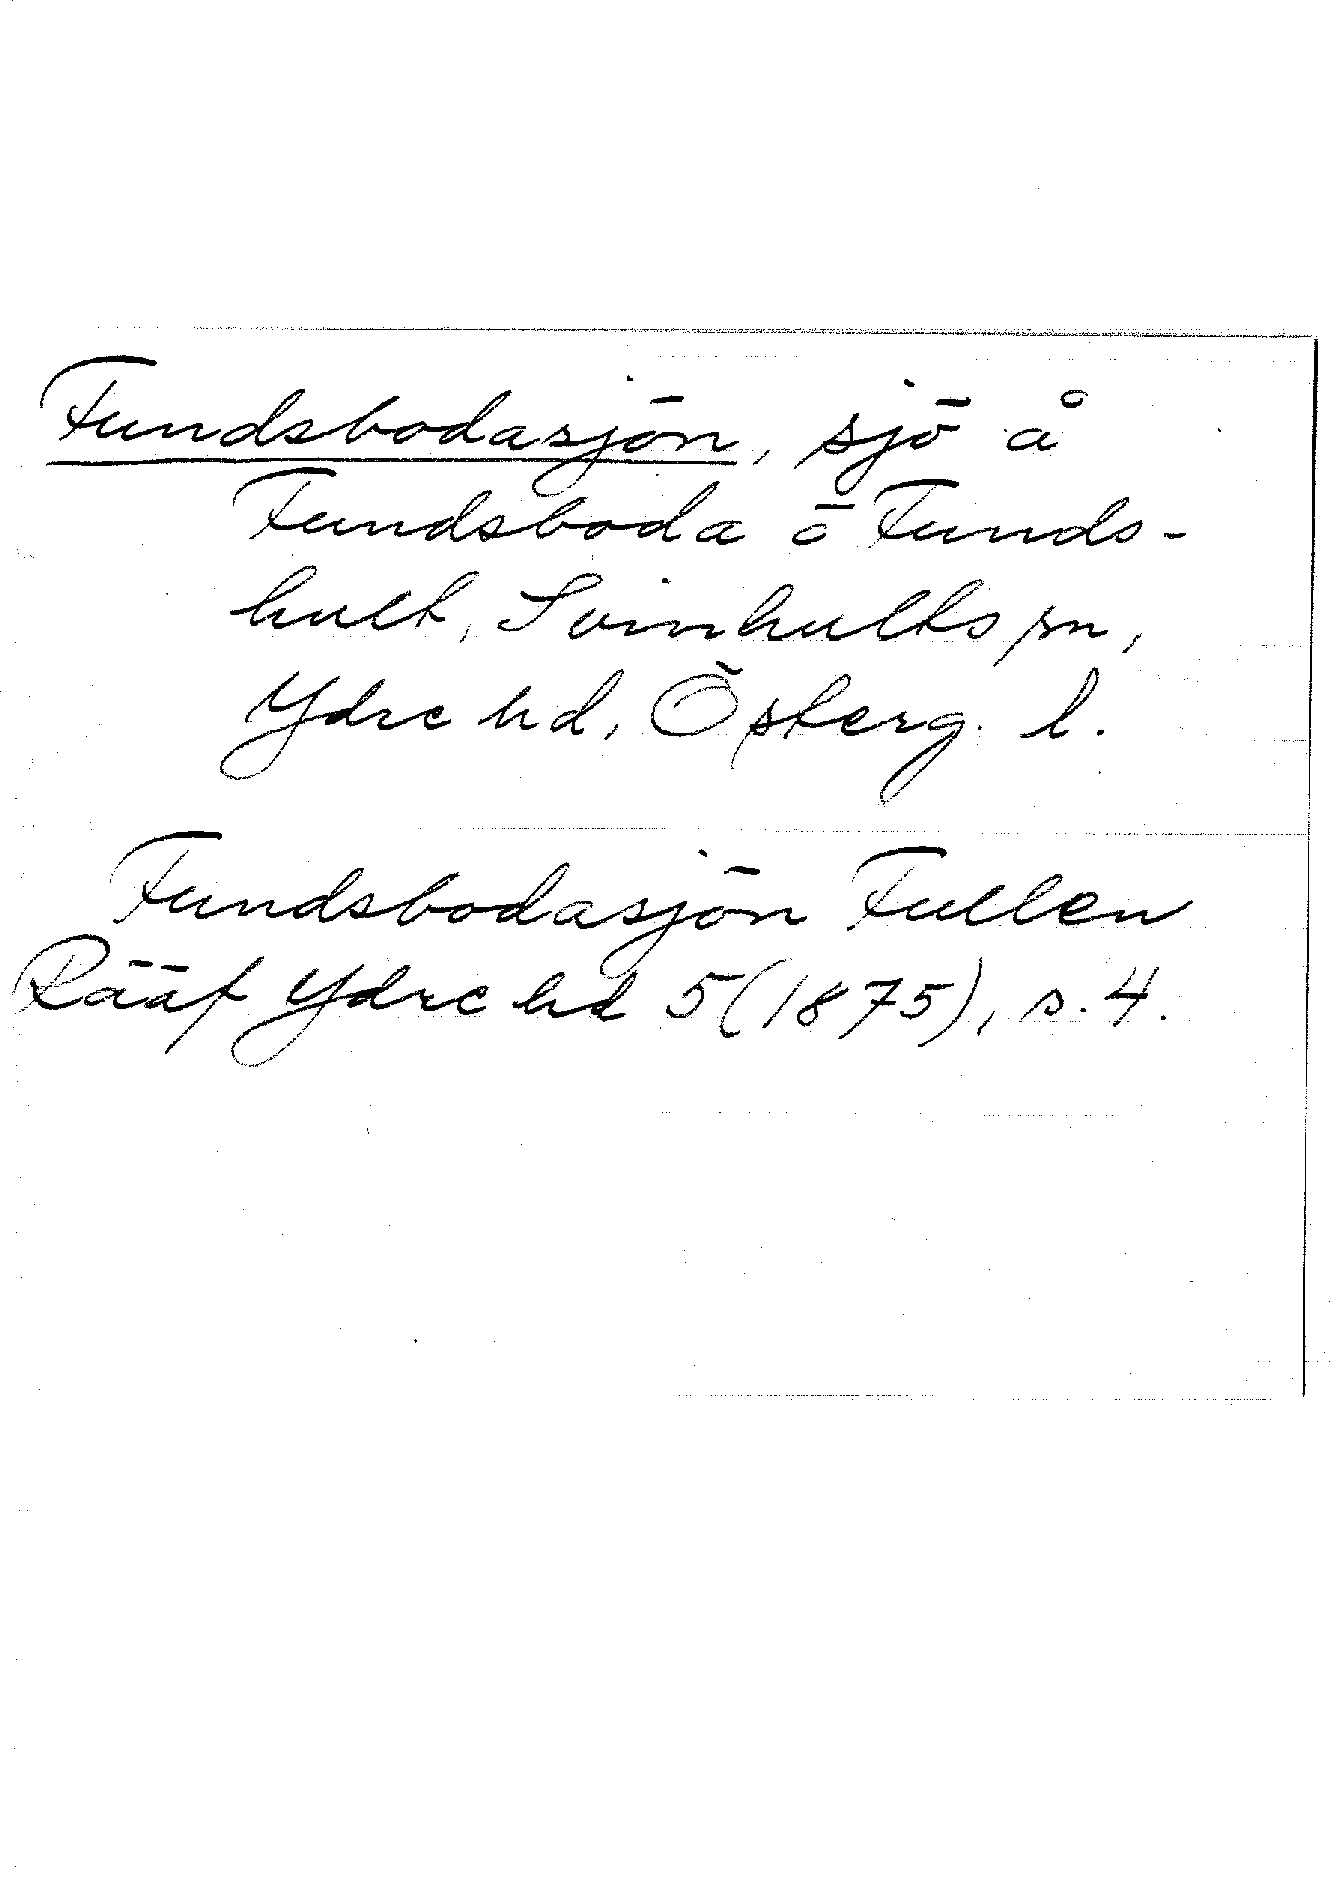 Fundsbodasjön, sjö å
Fundsboda ö Funds-
hult, Svinhults sn,
Ydre hd, Österg. l.
Fundsbodasjön Fullen
Rääf Ydre hd 5 (1875), s. 4.